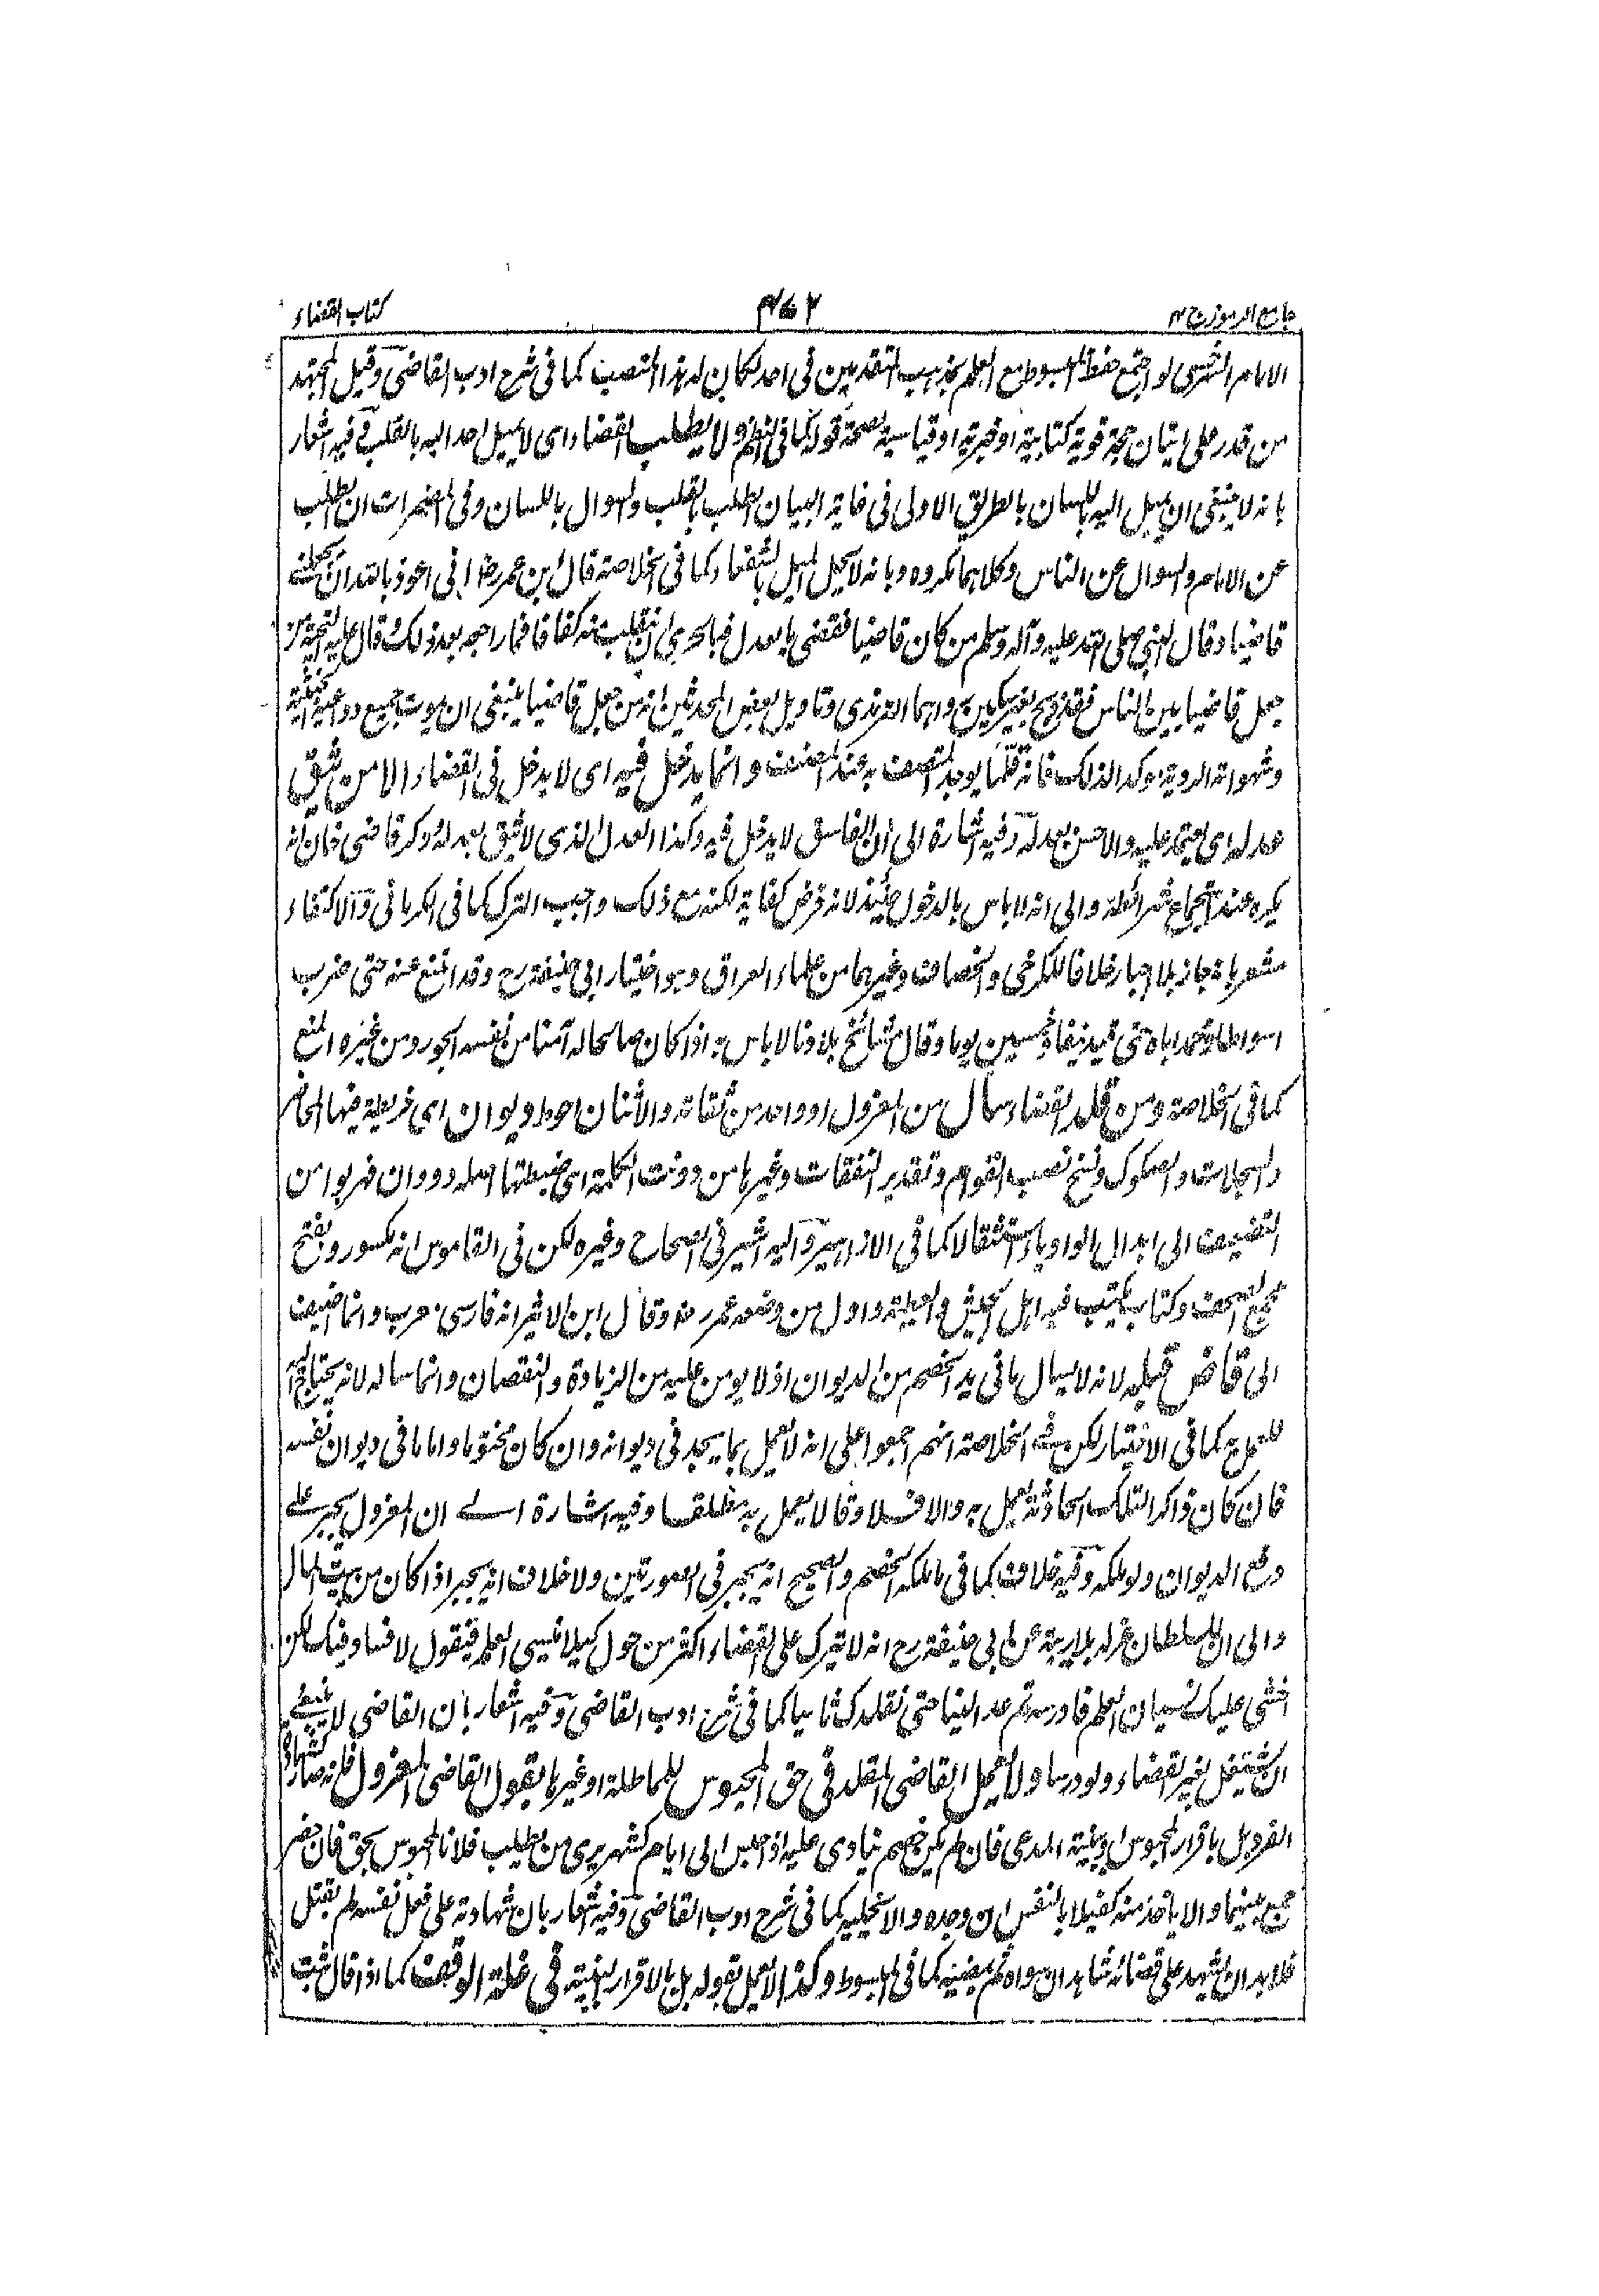 جامع الرموز ج ٢
كتاب القضاء
الامام السرخسى لو اجتمع حفظ المبسوط مع العلم بمذهب المتقدمين فى احد لكان له هذا المنصب كما فى شرح ادب القاضى وقيل المجتهد
من قدر على اتيان حجة قوية كتابية او خبرية او قياسية لصحة قوله كما فى النظم ولا يطلب القضاء اى لا يميل احد اليه بالقلب ففيه اشعار
بانه لا ينبغى ان يميل اليه باللسان بالطريق الاولى فى غاية البيان الطلب بالقلب والسوال باللسان وفى المضمرات ان الطلب
عن الامام والسوال عن الناس وكلاهما مكروه وبانه لا يحل الميل بالشفعاء كما فى الخلاصة قال ابن عمر رضه انى اعوذ بالله ان يجعلنى
قاضيا وقال النبى صلى الله عليه وآله وسلم من كان قاضيا فقضى بالعدل فبالحرى ان ينقلب منه كفافا فما راجعه بعد ذلك وقال عليه التحية من
جعل قاضيا بين الناس فقد ذبح بغير سكين رواهما الترمذى وتاويل بعض المحدثين انه من جعل قاضيا ينبغى ان يموت جميع دواعيه الخبيثة
وشهواته الردية موكد لذلك فانه قلما يوجد المتصف به عند المصنف و انما يدخل فيه اى لا يدخل فى القضاء الا من يثق
عدله اى يعتمد عليه والاحسن بعدله وفيه اشارة الى ان الفاسق لا يدخل فيه وكذا العدل الذى لا يثق بعدله وذكر قاضى خان انه
يكره عند اجتماع شرائطه والى انه لا باس بالدخول حينئذ لانه فرض كفاية لكنه مع ذلك واجب الترك كما فى الكرمانى والاكتفاء
مشعر بانه جاز بلا اجبار خلافا للكرخى والخصاف وغيرهما من علماء العراق وهو اختيار ابى حنيفة رح وقد امتنع عنه حتى ضرب
اسواطا ومحمد اباه حتى قيد نيفا وخمسين يوما وقال مشائخ بلادنا لا باس به اذا كان صالحا له آمنا من نفسه الجور ومن غيره المنع
كما فى الخلاصة ومن قلد القضاء سأل من المعزول او واحد من ثقاته والاثنان احوط ديوان اى خريطة فيها المحاضر
والسجلات والصكوك ونسخ نصب القوام وتقدير النفقات وغيرها من دونت الكلمة اى ضبطتها اصله دووان فهربوا من
التضعيف الى ابدال الواو ياء استثقالا كما فى الازاهير واليه اشير فى الصحاح وغيره لكن فى القاموس انه مكسور ويفتح
مجمع الصحف وكتاب يكتب فيه اهل الجيش والعطية واول من وضعه عمر رضه وقال ابن الاثير انه فارسى معرب وانما اضيف
الى قاض قبله لانه لا يسال ما فى يد الخصم من الديوان اذ لا يومن عليه من الزيادة والنقصان وانما ساله لانه يحتاج اليه
للعمل به كما فى الاختيار لكن فى الخلاصة انهم اجمعوا على انه لا يعمل بما يجد فى ديوانه وان كان مختوما واما ما فى ديوان نفسه
فان كان ذاكرا لتلك الحادثة يعمل به والا فلا وقالا يعمل به مطلقا وفيه اشارة الى ان المعزول يجبر على
دفع الديوان ولو ملكه وفيه خلاف كما فى ما ملكه الخصم والصحيح انه يجبر فى الصورتين ولا خلاف انه يجبر اذا كان من بيت المال
والى ان للسلطان عزله بلا ريبة عن ابى حنيفة رح انه لا يترك على القضاء اكثر من حول كيلا ينسى العلم فيقول لا فساد فيك لكن
اخشى عليك نسيان العلم فادرسه ثم عد الينا حتى نقلدك ثانيا كما فى شرح ادب القاضى وفيه اشعار بان القاضى لا ينبغى
ان يشتغل بغير القضاء ولو درسا ولا يعمل القاضى المقلد فى حق المحبوس للماطلة او غيرها بقول القاضى المعزول فانه صار كشهادة
الفرد بل باقرار المحبوس او ببينة المدعى فان لم يكن خصم ينادى عليه اذا جلس الى ايام كشهر يرى من يطلب فلانا المحبوس بحق فان حضر
جمع بينهما والا ياخذ منه كفيلا بالنفس ان وجده والا خليه كما فى شرح ادب القاضى وفيه اشعار بان شهادته على فعل نفسه لم يقبل
فلا بد ان يشهد على قضائه شاهدان سواه ثم يمضيه كما فى المبسوط وكذا لا يعمل بقوله بل بالاقرار او البينة فى غلة الوقف كما اذا قال ثبت